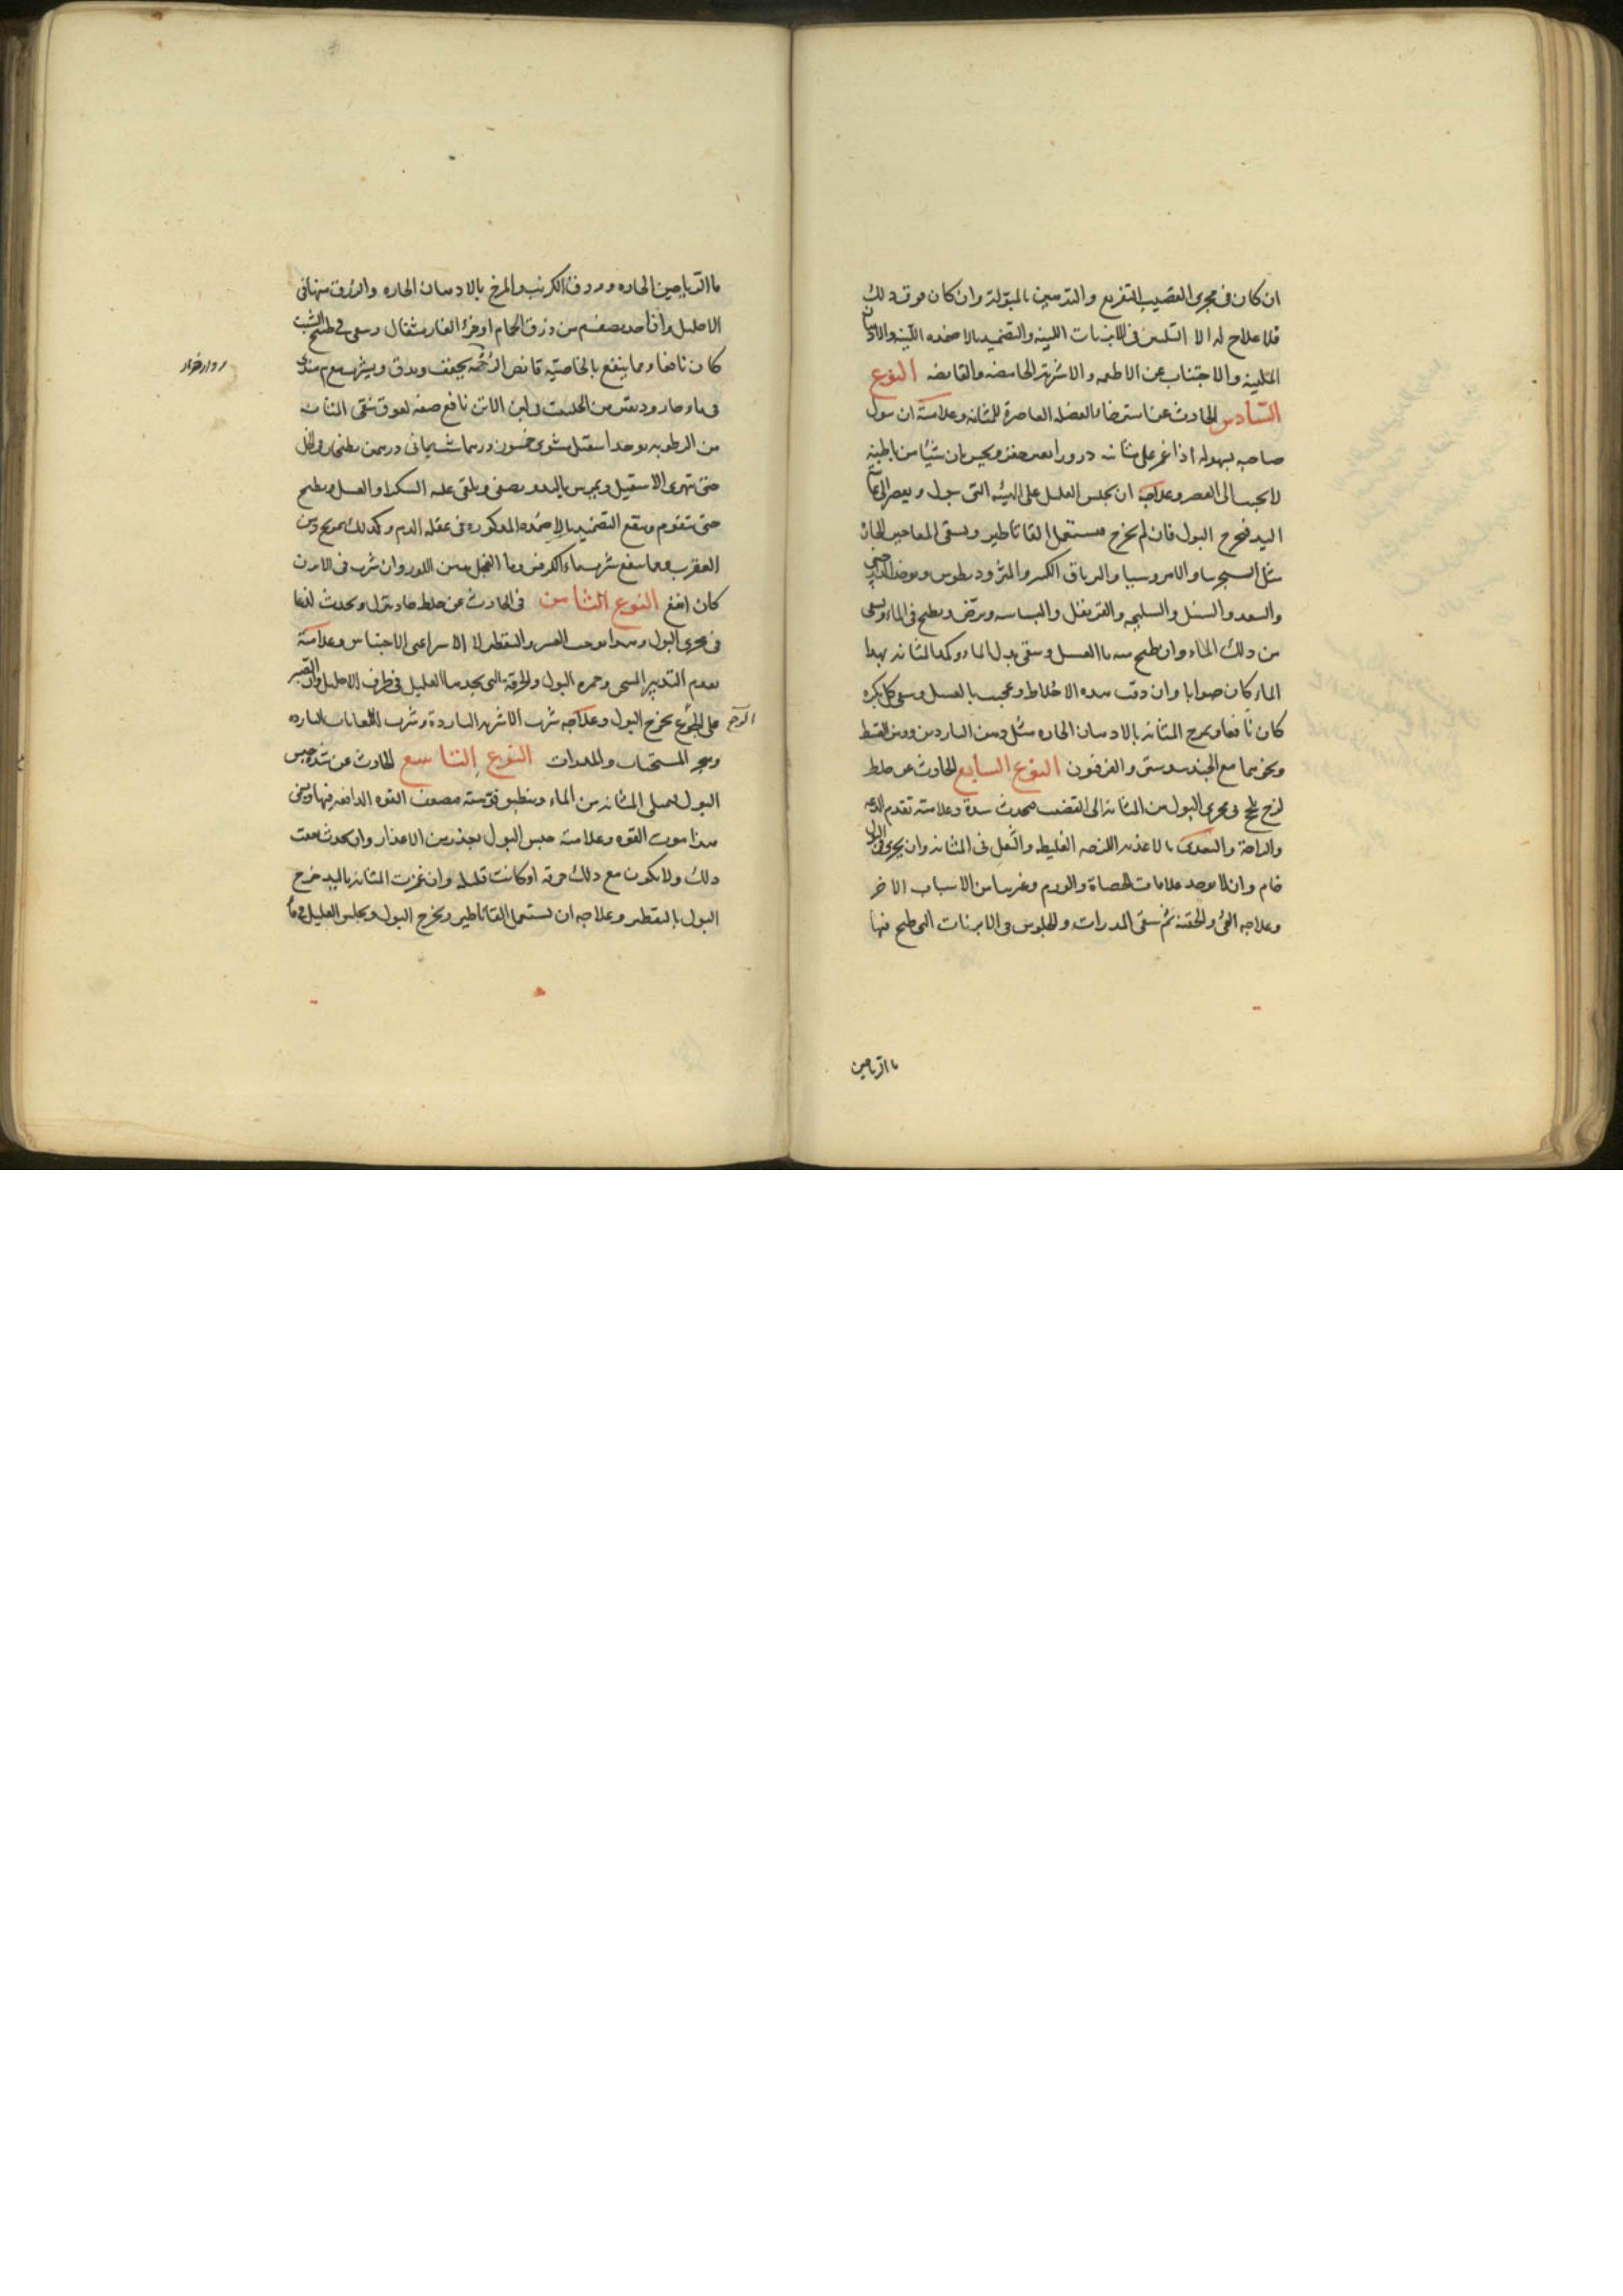 ان كان فى مجرى القضيب التفريع والتدهين بالمبولة وان كان فوق ذلك
فلا علاج له الا التليين فى الابزنات اللينة والتضميد بالاضمده اللينة والادهان
الملينة والاجتناب عن الاطعمه والاشربة الحامضه والقابضه النوع
السادس الحادث عن استرخاء العضله العاصرة للمثانه وعلامته ان يبول
صاحبه بسهوله اذا غمز على مثانته درورا بغير حفز ويحس بان شيئا من باطنه
لا يجيب الى العصر وعلاجه ان يجلس العليل على الهيئه التى يبول ويعصر العانة
اليد فيخرج البول فان لم يخرج فيستعمل القاثاطير ويسقى المعاجين الحارة
مثل والامروسيا والترياق الكبير والمثروديطوس ويوخذ
والسعد والسنبل والسليخه والقرنفل والبسباسه ويرض ويطبخ فى الماء ويسقى
من ذلك الماء وان طبخ منه ماء العسل وسقى بدل الماء وكمد المثانه بهذا
الماء كان صوابا وان دقت هذه الاخلاط وعجنت بالعسل وسقى كل بكرة
كان نافعا ويمرخ المثانه بالادهان الحاره مثل دهن الناردين ودهن القسط
ونحوهما مع الجندبيدستر والفرفيون النوع السابع الحادث عن خلط
لزج يلحج فى مجرى البول من المثانه الى القضيب فيحدث سدة وعلامته تقدم الدعه
والراحة والتغذى بالاغذيه اللزجه الغليظه والثقل فى المثانه وان يجرى فى البول
خام وان لا يوجد علامات الحصاة والورم وغيرهما من الاسباب الاخر
وعلاجه القئ والحقنه ثم سقى المدرات والجلوس فى الابزنات التى طبخ فيها
ما الرياحين
ما الرياحين الحاره وورق الكرنب والمرخ بالادهان الحاره والزرق منها فى
الاحليل وان اخذ من ذرق الحمام او خرؤ الفار مثقال وسقى فى طبيخ الشبت
كان نافعا ومما ينفع بالخاصيه قانصه الرخمه يجفف ويدق ويشرب
فى ماء حار ودهن من الحلتيت ولبن الاتن نافع صفة لعوق ينقى المثانه
من الرطوبه يوخذ اسقيل مشوى خمسون درهما
حتى يتهرى الاسقيل ويمرس باليد ويصفى ويلقى عليه السكر او العسل ويطبخ
حتى يتقوم وينفع التضميد بالاضمده المذكوره فى عقله الدم وكذلك تمريخ دهن
العقرب ومما ينفع شرب ماء الكرفس وماء الفجل بدهن اللوز وان شرب فى الابزن
كان انفع النوع الثامن فى الحادث عن خلط حاد ينزل ويحدث لذعا
فى مجرى البول وهذا يوجب العسر والتقطير لا الاسر اعنى الاحتباس وعلامته
تقدم التدبير المسخن وحمره البول والحرقة التى يجدها العليل فى طرف الاحليل وان الصبر
على الوجع يخرج البول وعلاجه شرب الاشربه الباردة وشرب اللعابات الباردة
وهجر المسخنات والمدرات النوع التاسع الحادث عن شدة حبس
البول فيمتلى المثانه من الماء وينطبق فوهته فيضعف القوه الدافعه فيها ويفنى
هذا بموت القوه وعلامته حبس البول بعذر من الاعذار وان يحدث بعقب
ذلك ولا يكون مع ذلك حرقه او كانت قليله وان غمزت المثانه باليد خرج
البول بالتقطير وعلاجه ان يستعمل القاثاطير ويخرج البول ويجلس العليل فى ماء